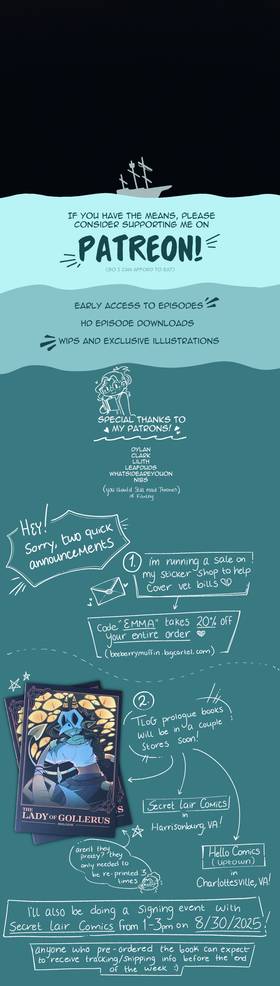 IF YOU HAVE THE MEANS, PLEASE
CONSIDER SUPPORTING ME ON
PATREON!
(SO I CAN AFFORD TO EAT)
EARLY ACCESS TO EPISODES
HD EPISODE DOWNLOADS
WIPS AND EXCLUSIVE ILLUSTRATIONS
SPECIAL THANKS TO
MY PATRONS!
DYLAN
CLARK
LILITH
LEAFDUOS
WHATSIDEAREYOUON
NIBS
(you should still read Thrones
of Eating)
Hey!
Sorry, two quick
announcements
1.
i'm running a sale on
my sticker shop to help
cover vet bills
Code "EMMA" takes 20% off
your entire order
(beeberrymuffin.bigcartel.com)
2.
TLOG prologue books
will be in a couple
stores soon!
THE
LADY OF GOLLERUS
Secret Lair Comics
in
Harrisonburg, VA!
Hello Comics
(Uptown)
in
Charlottesville, VA!
aren't they
pretty? they
only needed to
be re-printed 3
times
i'll also be doing a signing event with
Secret Lair Comics from 1-3pm on 8/30/2025!
anyone who pre-ordered the book can expect
to receive tracking/shipping info before the end
of the week :)